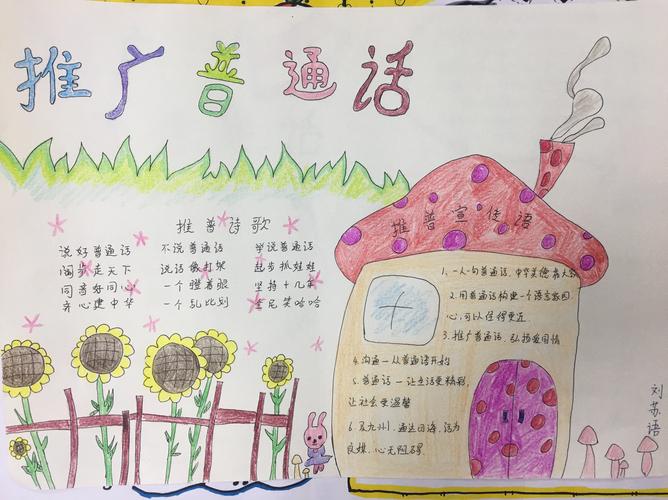 推广普通话
推普诗歌
说好普通话
阔步走天下
同音好同心
齐心建中华
不说普通话
说话像打架
一个瞪着眼
一个乱比划
学说普通话
起步抓娃娃
坚持十几年
全是笑哈哈
推普宣传语
1、一人一句普通话，中华美德
2、用普通话构建一个语言家园
心，可以住得更近
3、推广普通话，弘扬爱国情
4、沟通一从普通话开始
5、普通话一让生活更精彩，
让社会更温馨
6、九州，通达四海，话为
良媒，心无阻碍
刘苏语